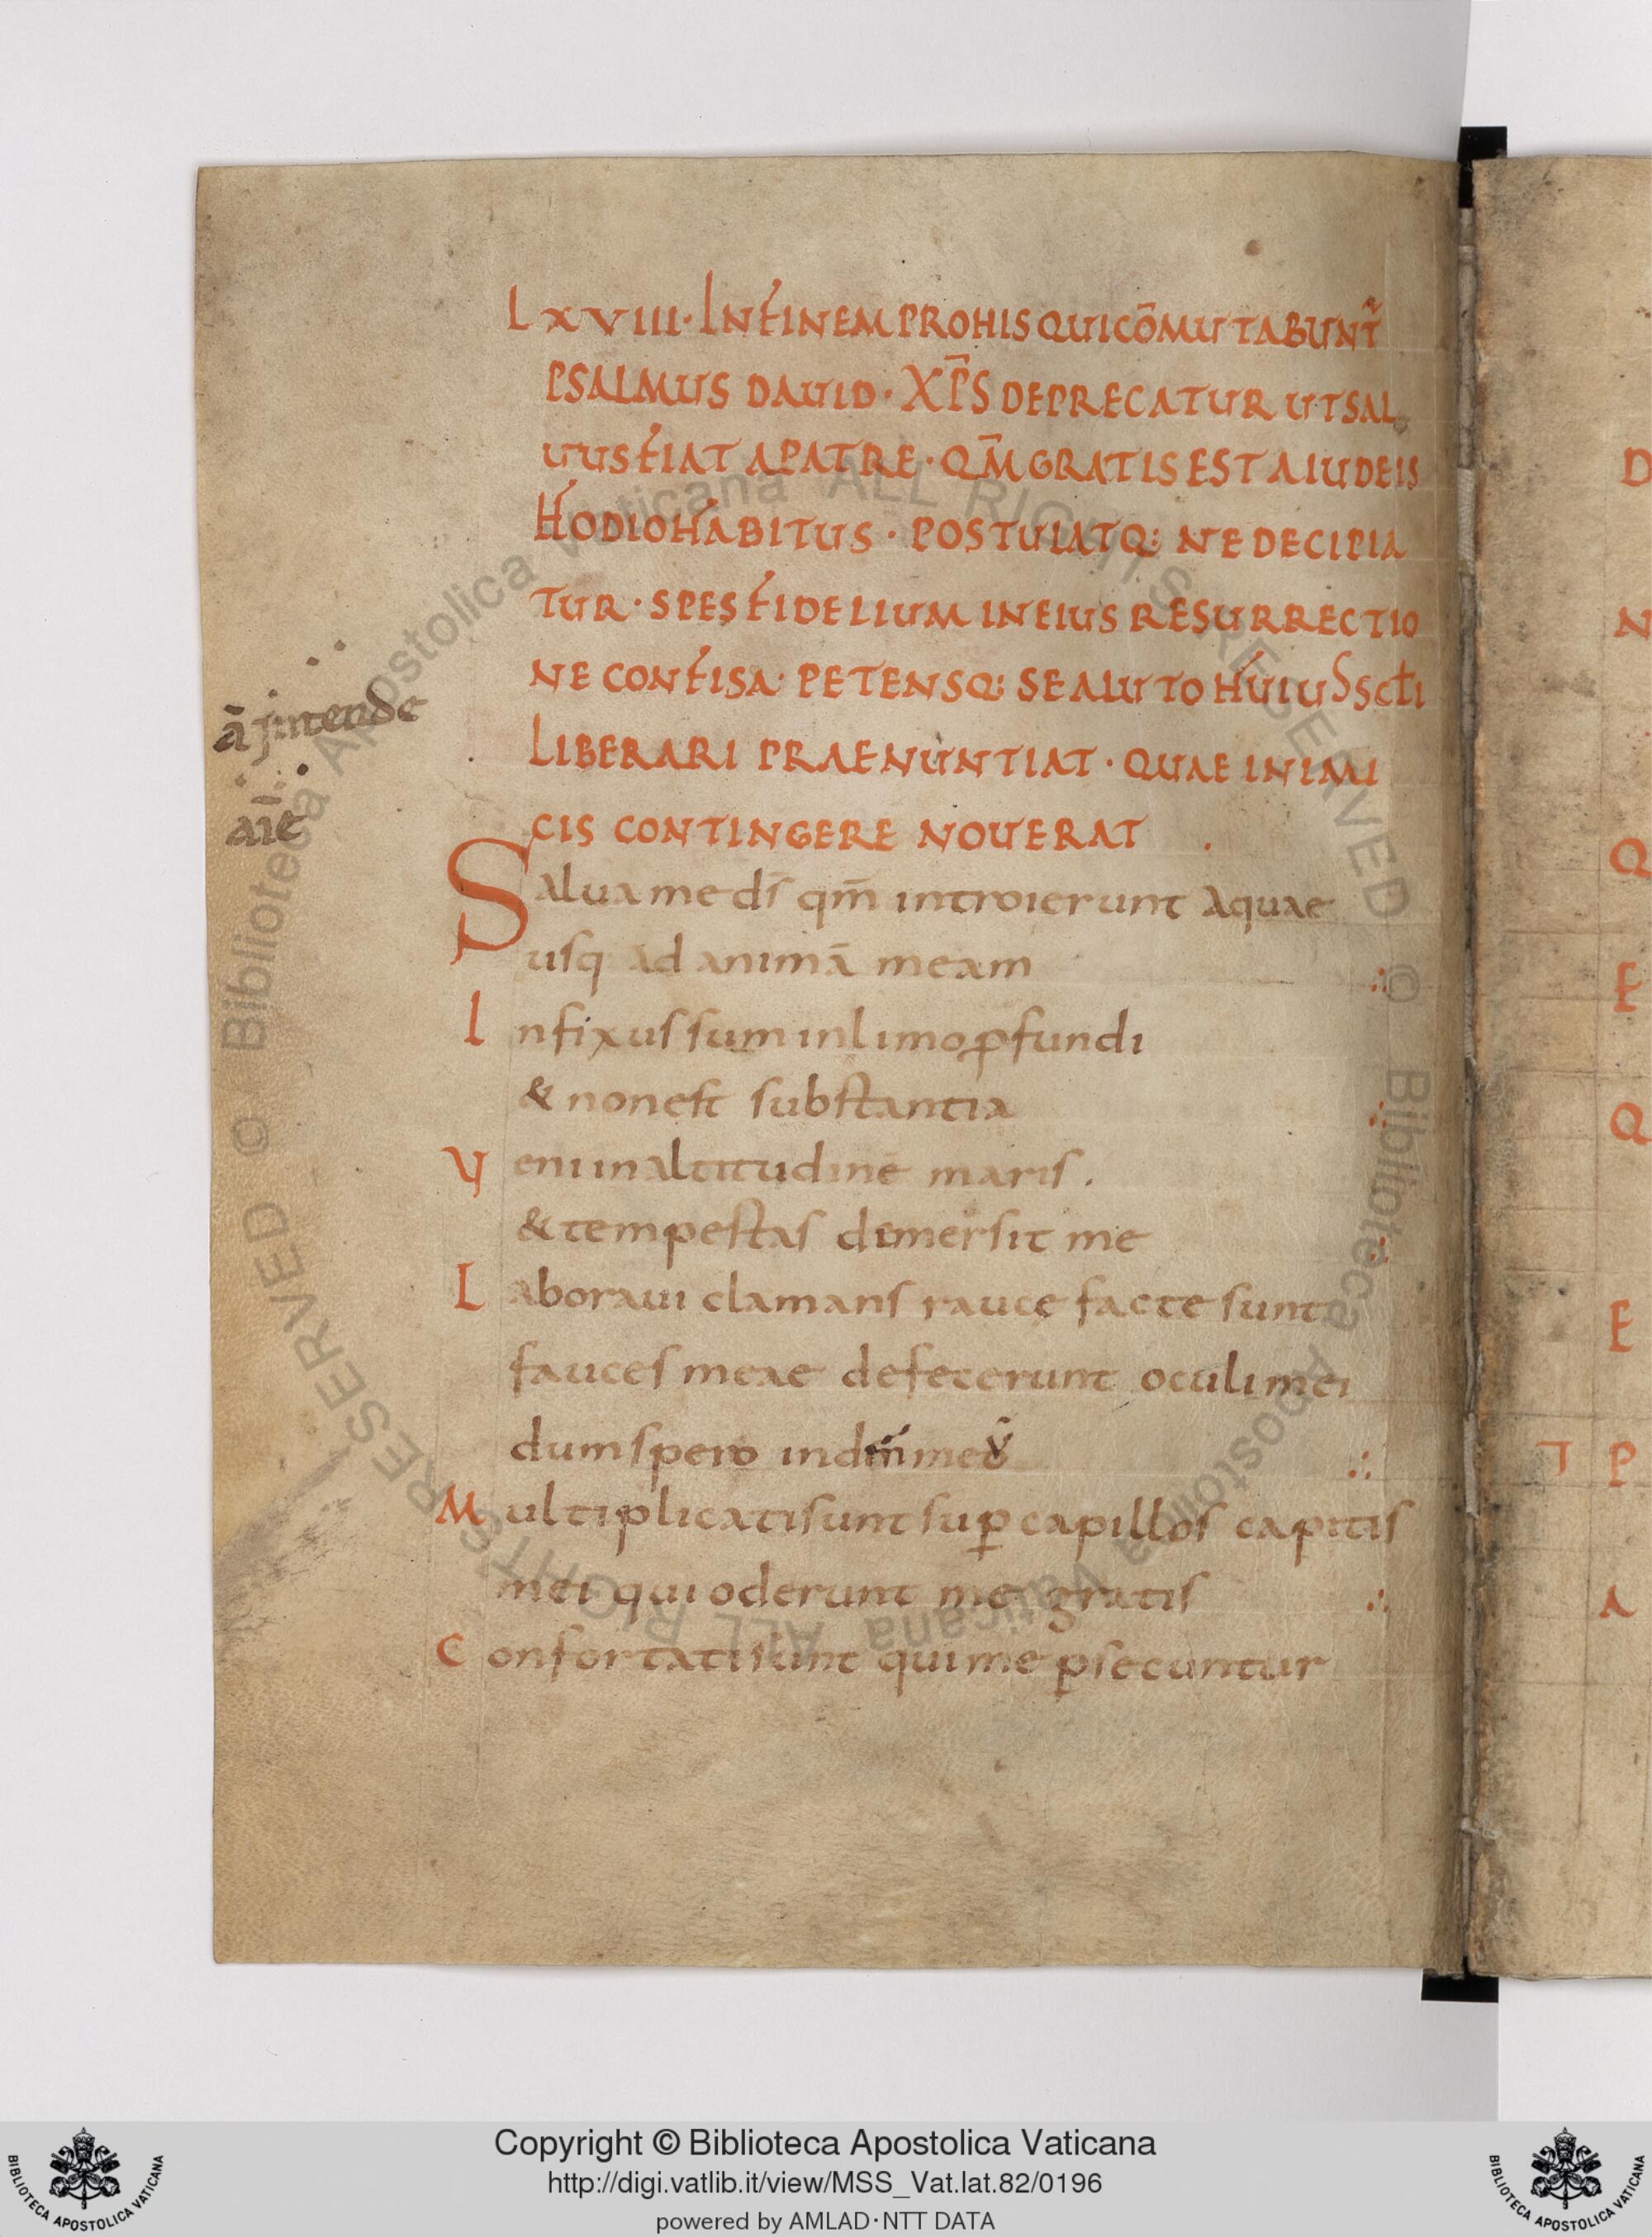 LXVIII· IN FINEM PRO HIS QUI COM̄UTABUNT̃
PSALMUS DAUID · XP̄S DEPRECATUR UT SAL
UUS FIAT A PATRE · QM̄ GRATIS EST A IUDEIS
HODIO HABITUS · POSTULATQ: NE DECIPIA
TUR · SPES FIDELIUM IN EIUS RESURRECTIO
NE CONFISA· PETENSQ: SE A LUTO HUIUS SCŁI
LIBERARI PRAENUNTIAT · QUAE INIMI
CIS CONTINGERE NOUERAT .
ā Intende
Salua me dī qm̄ introierunt aquae
usq ad animā meam ∴
Infixus sum in limo ꝓfundi
& non est substantia ∴
Veni in altitudinē maris .
& tempestas dimersit me ∴
Laboraui clamans rauce facte sunt
fauces meae defecerunt oculi mei
dum spero in dm̄ meū ∴
Multiplicati sunt sup̱ capillos capitis
mei qui oderunt me gratis ∴
Confortati sunt qui me ꝑsecuntur
D
N
Q
E
Q
E
T P
A
Copyright © Biblioteca Apostolica Vaticana
http://digi.vatlib.it/view/MSS_Vat.lat.82/0196
powered by AMLAD·NTT DATA
BIBLIOTECA APOSTOLICA VATICANA
BIBLIOTECA APOSTOLICA VATICANA
© Biblioteca Apostolica Vaticana ALL RIGHTS RESERVED
© Biblioteca Apostolica Vaticana ALL RIGHTS RESERVED